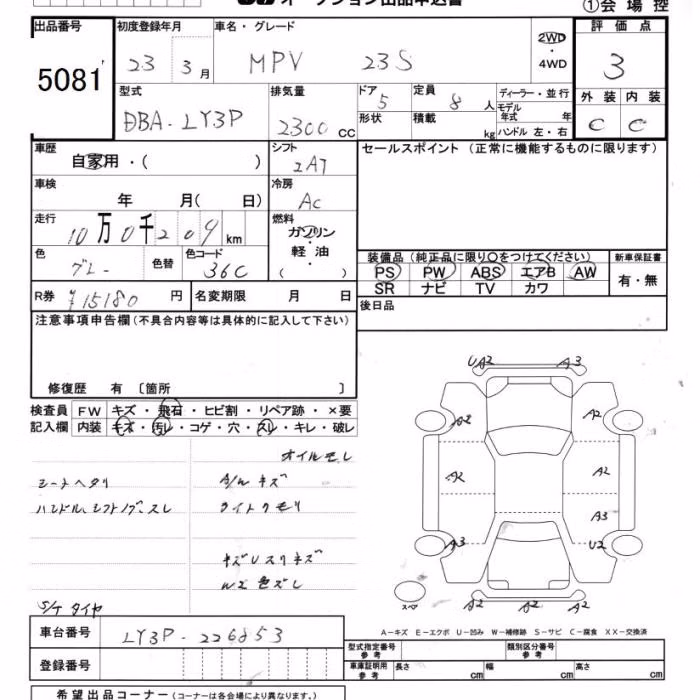 オークション出品申込書
①会場控
出品番号
5081
初度登録年月
23 3月
車名・グレード
MPV 23S
2WD
・
4WD
評価点
3
型式
DBA-LY3P
排気量
2300 CC
ドア
5
定員
8 人
ディーラー・並行
モデル年式 年
形状
積載
kg
ハンドル 左・右
外装 内装
C C
車歴
自家用・( )
シフト
車検
年 月( 日)
冷房
AC
走行
10万0千209km
燃料
ガソリン
軽油
( )
色
グレー
色替
色コード
36C
R券
¥15180 円
名変期限 月 日
セールスポイント (正常に機能するものに限ります)
装備品 (純正品に限り○をつけてください)
PS PW ABS エアB AW
SR ナビ TV カワ
新車保証書
有・無
後日品
注意事項申告欄 (不具合内容等は具体的に記入して下さい)
修復歴 有 〔箇所 〕
検査員
記入欄
FW キズ・飛石・ヒビ割・リペア跡・×要
内装 キズ・汚レ・コゲ・穴・スレ・キレ・破レ
オイルモレ
シートヘタリ
A/Wキズ
ハンドル、シフトノブスレ
ライトクモリ
キズUスリキズ
W2色ズレ
S/Tタイヤ
UA2 A3
A2 A2
A2 A2
A3
A3 U2
スペア
A2 A2 A2
A-キズ E-エクボ U-凹み W-補修跡 S-サビ C-腐食 XX-交換済
車台番号
LY3P-226853
登録番号
型式指定番号
参考
類別区分番号
参考
車庫証明用
参考
長さ cm 幅 cm 高さ cm
希望出品コーナー (コーナーは各会場により異なります。)